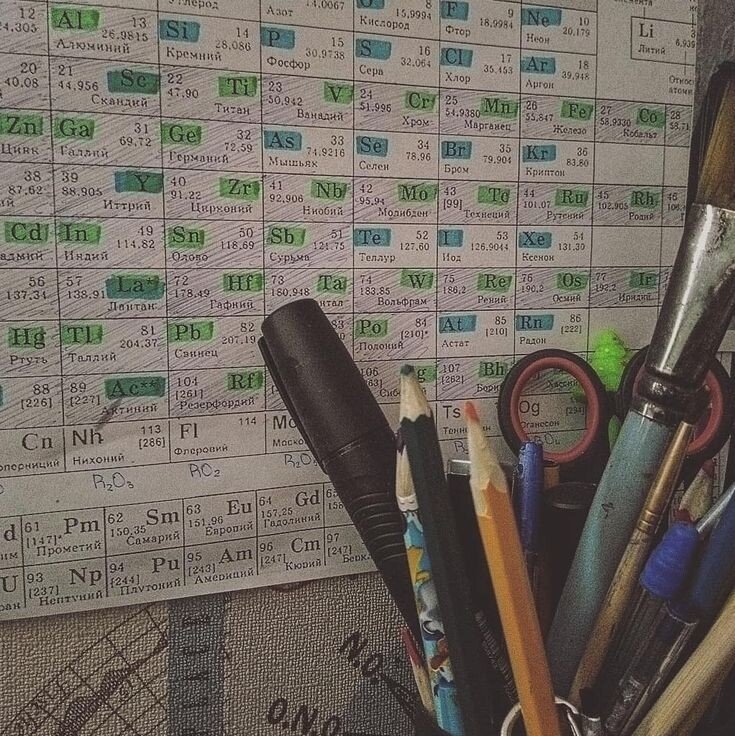 углерод
Азот 14,0067
О 8 15,9994 Кислород
F 9 18,9984 Фтор
Ne 10 20,179 Неон
Li 6,939 Литий
12 24,305
Al 13 26,9815 Алюминий
Si 14 28,086 Кремний
P 15 30,9738 Фосфор
S 16 32,064 Сера
Cl 17 35,453 Хлор
Ar 18 39,948 Аргон
20 40,08
21 Sc 44,956 Скандий
22 Ti 47,90 Титан
23 V 50,942 Ванадий
24 Cr 51,996 Хром
25 Mn 54,9380 Марганец
26 Fe 55,847 Железо
27 Co 58,9330 Кобальт
28 58,71
Zn Цинк
Ga 31 69,72 Галлий
Ge 32 72,59 Германий
As 33 74,9216 Мышьяк
Se 34 78,96 Селен
Br 35 79,904 Бром
Kr 36 83,80 Криптон
38 87,62
39 Y 88,905 Иттрий
40 Zr 91,22 Цирконий
41 Nb 92,906 Ниобий
42 Mo 95,94 Молибден
43 Tc [99] Технеций
44 Ru 101,07 Рутений
45 Rh 102,905 Родий
46
Cd
In 49 114,82 Индий
Sn 50 118,69 Олово
Sb 51 121,75 Сурьма
Te 52 127,60 Теллур
I 53 126,9044 Иод
Xe 54 131,30 Ксенон
56 137,34
57 La* 138,91 Лантан
72 Hf 178,49 Гафний
73 Ta 180,948
74 W 183,85 Вольфрам
75 Re 186,2 Рений
76 Os 190,2 Осмий
77 Ir 192,2 Иридий
Hg Ртуть
Tl 81 204,37 Таллий
Pb 82 207,19 Свинец
83
Po 84 [210]* Полоний
At 85 [210] Астат
Rn 86 [222] Радон
88 [226]
89 Ac** [227] Актиний
104 Rf [261] Резерфордий
106 [263]
107 Bh [262]
Cn
Nh 113 [286] Нихоний
Fl 114 Флеровий
Ts
Og [294] Оганесон
R₂O₃ RO₂ R₂O₅
61 Pm [147]* Прометий
62 Sm 150,35 Самарий
63 Eu 151,96 Европий
64 Gd 157,25 Гадолиний
65
U
93 Np [237] Нептуний
94 Pu [244] Плутоний
95 Am [243] Америций
96 Cm [247] Кюрий
97 [247]
N.O.
O.N.O.